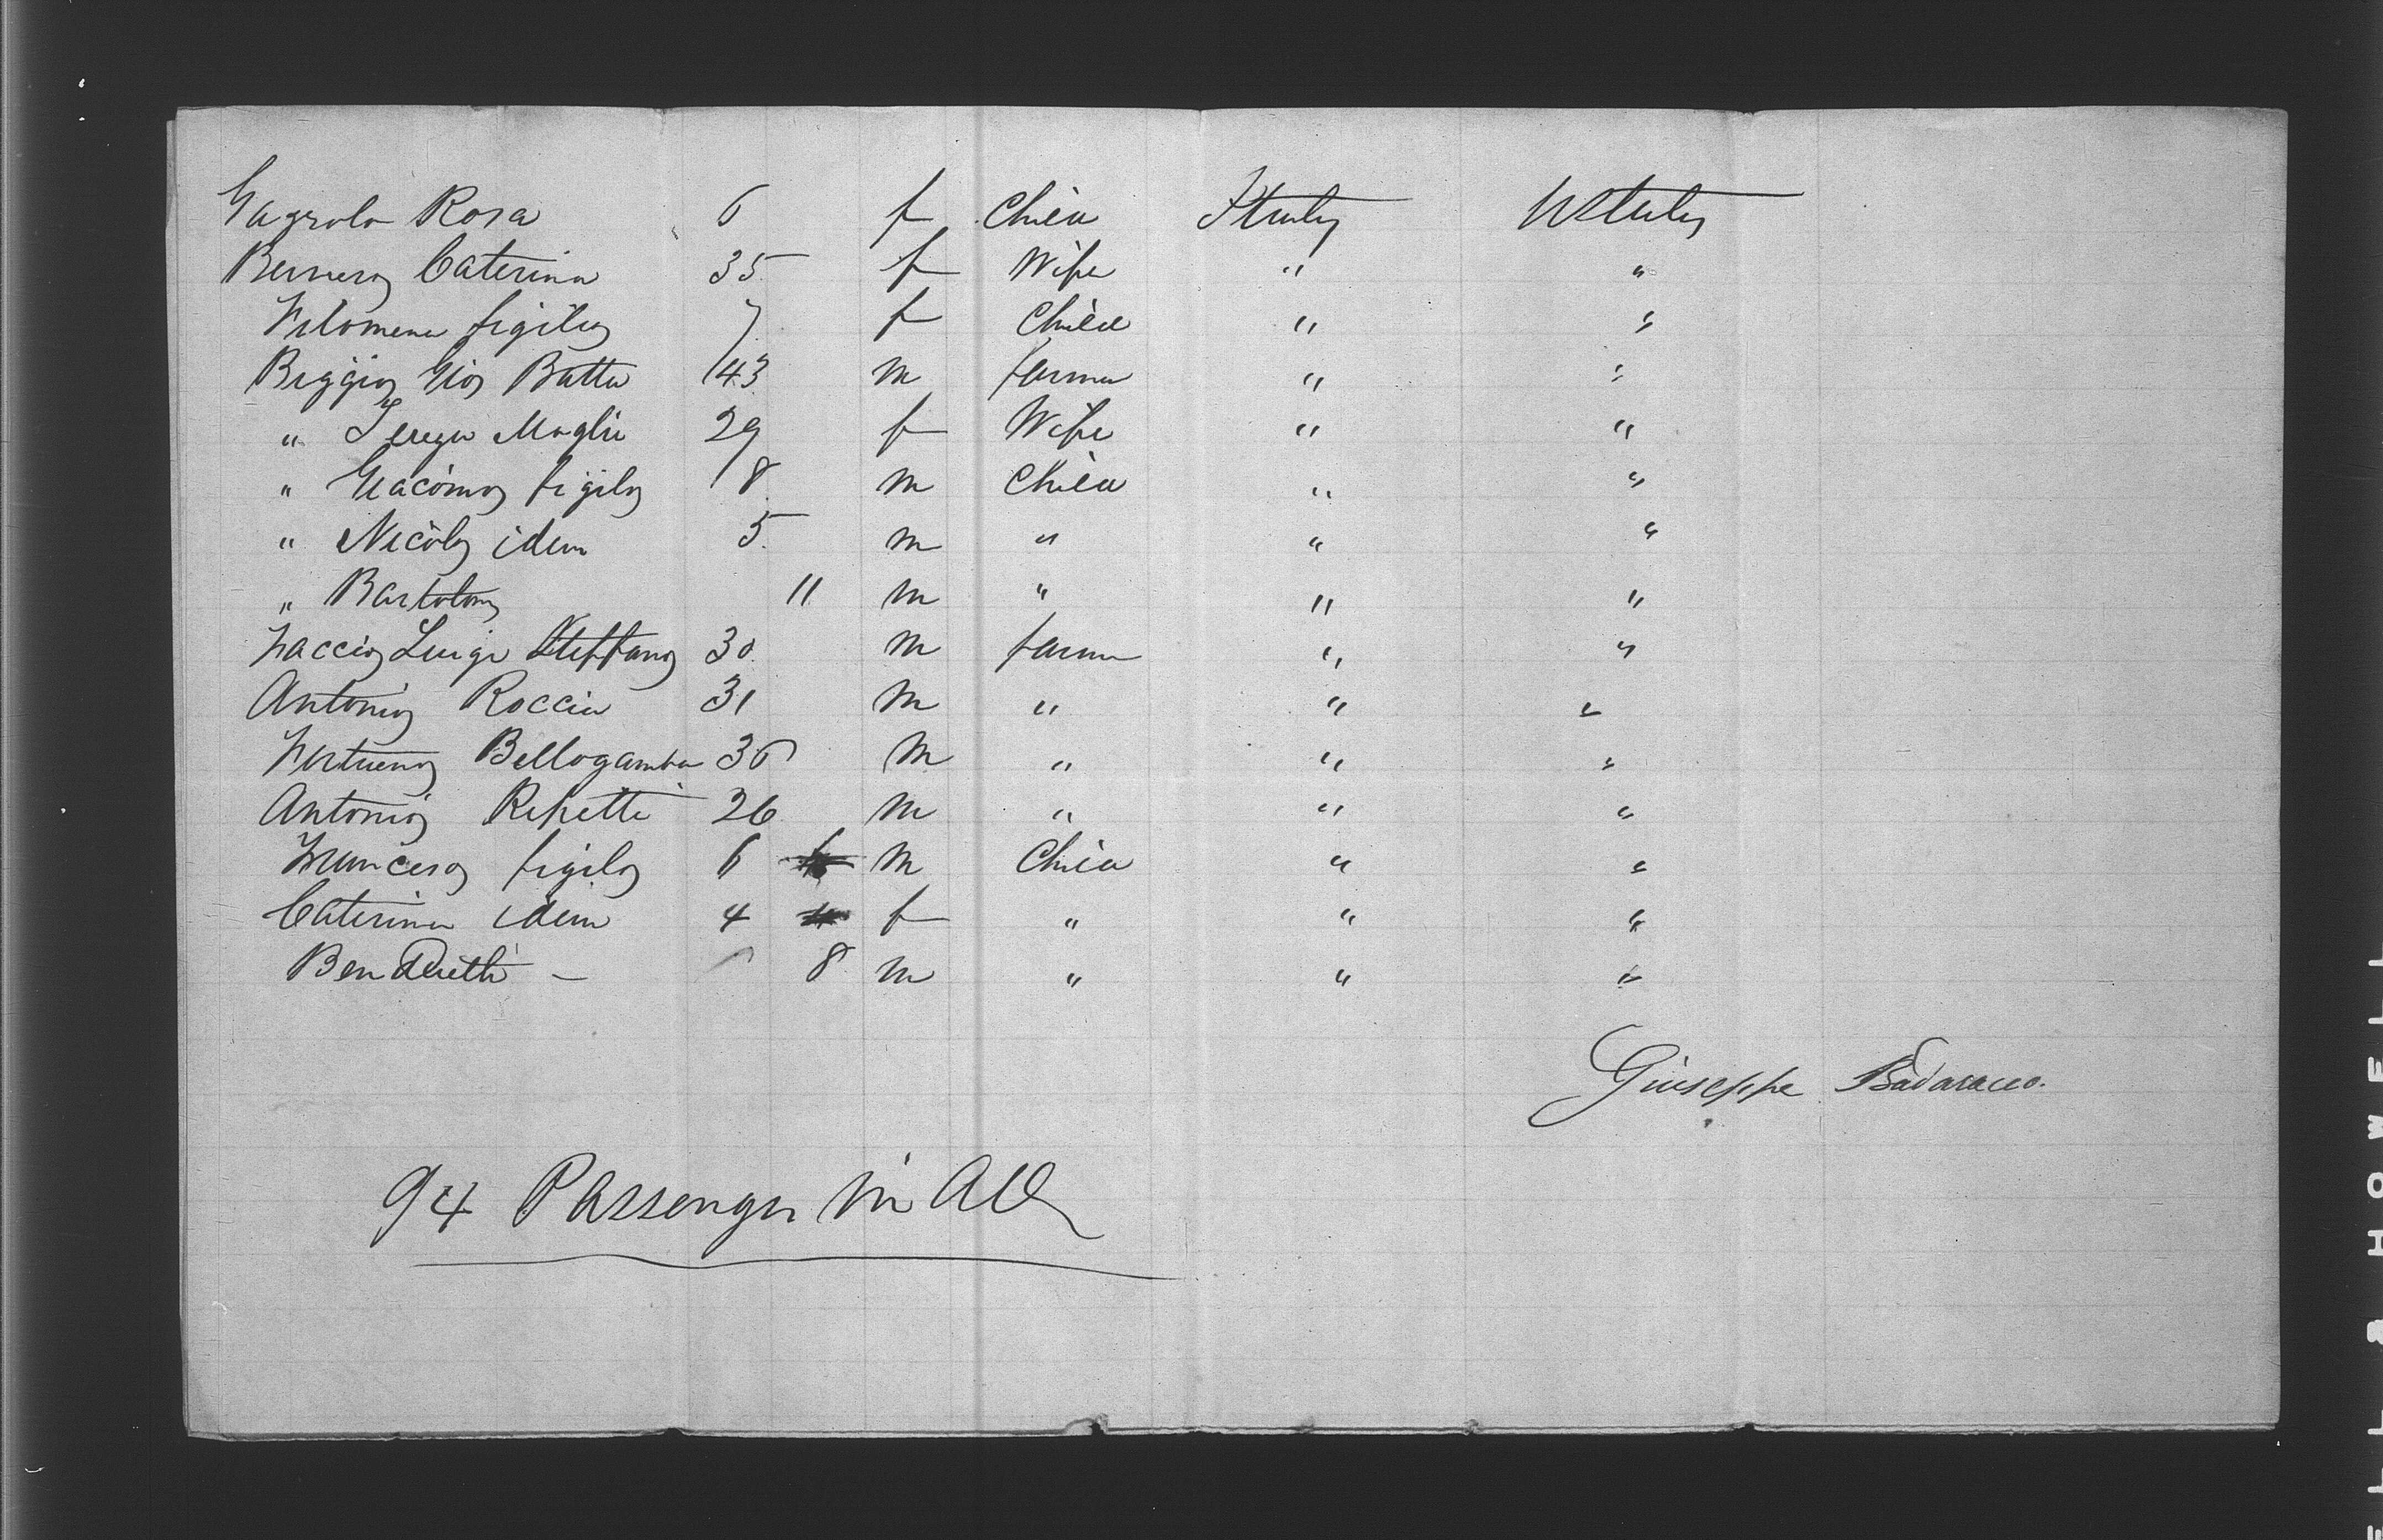 Gagrolo Rosa 6 f Child Italy U States
Bernero Caterina 35 f Wife " "
Filomena figilia 7 f Child " "
Biggio Gio Batta 43 m farmer " "
" Tereza Moglie 29 f Wife " "
" Giacomo figilo 8 m Child " "
" Nicolo idem 5 m " " "
" Bartolom 11 m " " "
Luigi Steffano 30 m farmer " "
Antonio Roccia 31 m " " "
Bellogamba 36 m " " "
Antonio Repetti 26 m " " "
Francesco figilo 6 m Child " "
Caterina idem 4 f " " "
Ben Detti — 8 m " " "
Giuseppe Badaracco.
94 Passenger in All
BELL & HOWELL